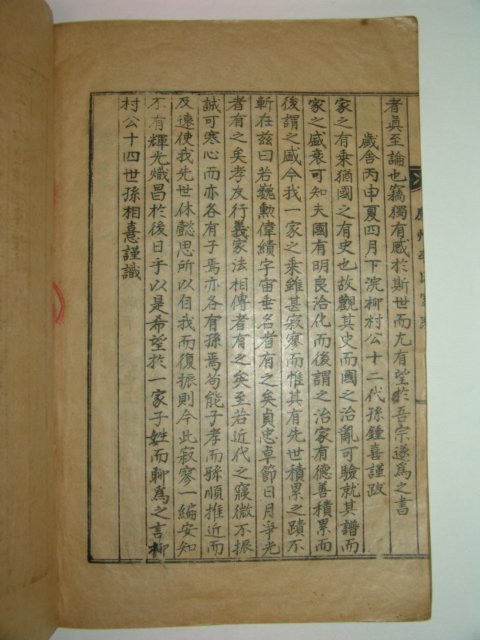 者眞至論也竊獨有感於斯世而尤有望於吾宗遂爲之書
歲舍丙申夏四月下浣柳村公十二代孫鍾喜謹跋
家之有乘猶國之有史也故觀其史而國之治亂可驗就其譜而
家之盛衰可知夫國有明良治化而後謂之治家有德善積累而
後謂之盛今我一家之乘雖甚寂寥而惟其有先世積累之蹟不
斬在玆曰若巍勳偉績宇宙垂名者有之矣貞忠卓節日月爭光
者有之矣孝友行義家法相傳者有之矣至若近代之寢微不振
誠可寒心而亦各有子焉亦各有孫焉苟能子孝而孫順推近而
及遠使我先世休懿思所以自我而復振則今此寂寥一編安知
不有輝光熾昌於後日乎以是希望於一家子姓而聊爲之言柳
村公十四世孫相憙謹識